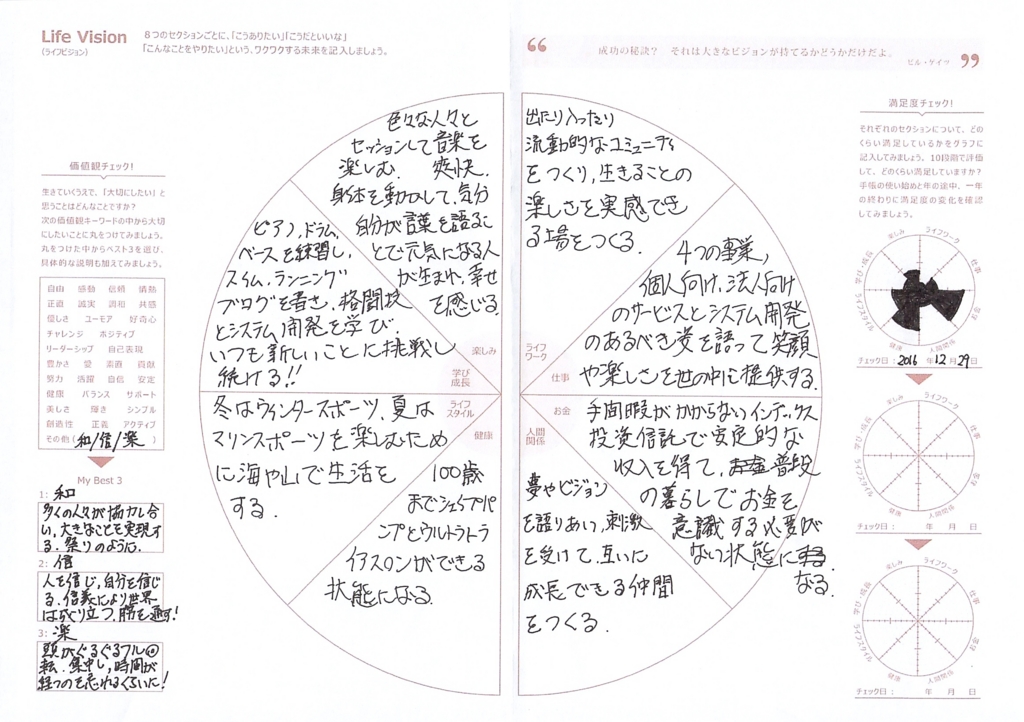 Life Vision
(ライフビジョン)
8つのセクションごとに、「こうありたい」「こうだといいな」
「こんなことをやりたい」という、ワクワクする未来を記入しましょう。
“ 成功の秘訣？ それは大きなビジョンが持てるかどうかだけだよ。
ビル・ゲイツ ”
価値観チェック！
生きていくうえで、「大切にしたい」と
思うことはどんなことですか？
次の価値観キーワードの中から大切
にしたいことに丸をつけてみましょう。
丸をつけた中からベスト3を選び、
具体的な説明も加えてみましょう。
自由 感動 信頼 情熱
正直 誠実 調和 共感
優しさ ユーモア 好奇心
チャレンジ ポジティブ
リーダーシップ 自己表現
豊かさ 愛 素直 貢献
努力 活躍 自信 安定
健康 バランス サポート
美しさ 輝き シンプル
創造性 正義 アクティブ
その他( 和/信/楽 )
My Best 3
1: 和
多くの人々が協力し合
い,大きなことを実現す
る.祭りのように.
2: 信
人を信じ,自分を信じ
る.信義により世界
は成り立つ.筋を通す!
3: 楽
頭がぐるぐるフル回
転.集中し,時間が
経つのを忘れるくらいに!
色々な人々と
セッションして音楽を
楽しむ. 爽快.
身体を動かして,気分
自分が言葉を語るこ
とで元気になる人
が生まれ,幸せ
を感じる.
楽しみ
ピアノ,ドラム,
ベースを練習し,
スイム,ランニング
ブログを書き,格闘技
とシステム開発を学び,
いつも新しいことに挑戦し
続ける!!
学び
成長
冬はウィンタースポーツ,夏は
マリンスポーツを楽しむため
に海や山で生活を
する.
ライフ
スタイル
健康
100歳
までシェイプアパ
ンプとウルトラトラ
イアスロンができる
状態になる.
出たり入ったり
流動的なコミュニティ
をつくり,生きることの
楽しさを実感でき
る場をつくる.
ライフ
ワーク
4つの事業,
個人向け,法人向け
のサービスとシステム開発
のあるべき姿を語って笑顔
や楽しさを世の中に提供する.
仕事
お金
手間暇がかからないインデックス
投資信託で安定的な
収入を得て,普段
の暮らしでお金を
意識する必要が
ない状態に
なる.
人間
関係
夢やビジョン
を語りあい,刺激
を受けて,互いに
成長できる仲間
をつくる.
満足度チェック！
それぞれのセクションについて、どの
くらい満足しているかをグラフに
記入してみましょう。10段階で評価
して、どのくらい満足していますか？
手帳の使い始めと年の途中、一年
の終わりに満足度の変化を確認
してみましょう。
楽しみ ライフワーク
学び・成長 仕事
ライフスタイル お金
健康 人間関係
チェック日： 2016 年 12 月 29 日
楽しみ ライフワーク
学び・成長 仕事
ライフスタイル お金
健康 人間関係
チェック日： 年 月 日
楽しみ ライフワーク
学び・成長 仕事
ライフスタイル お金
健康 人間関係
チェック日： 年 月 日